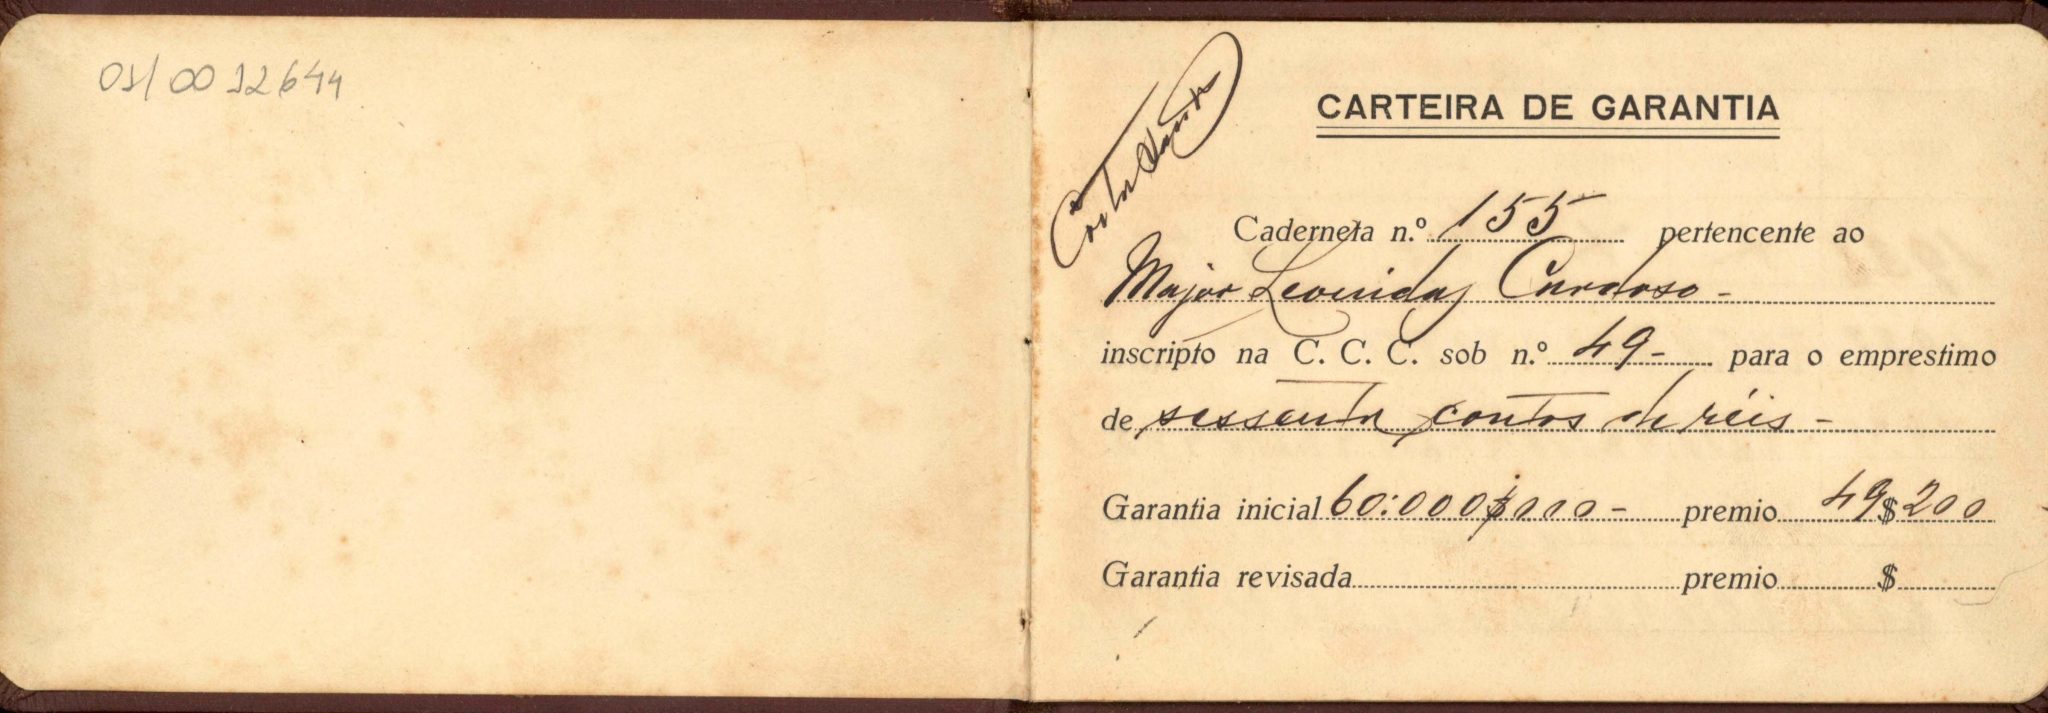 01/0012644
CARTEIRA DE GARANTIA
Caderneta n.º 155 pertencente ao
Major Leonidas Cardoso -
inscripto na C. C. C. sob n.º 49- para o emprestimo
de sessenta contos de réis -
Garantia inicial 60:000$000 - premio 49$200
Garantia revisada premio $